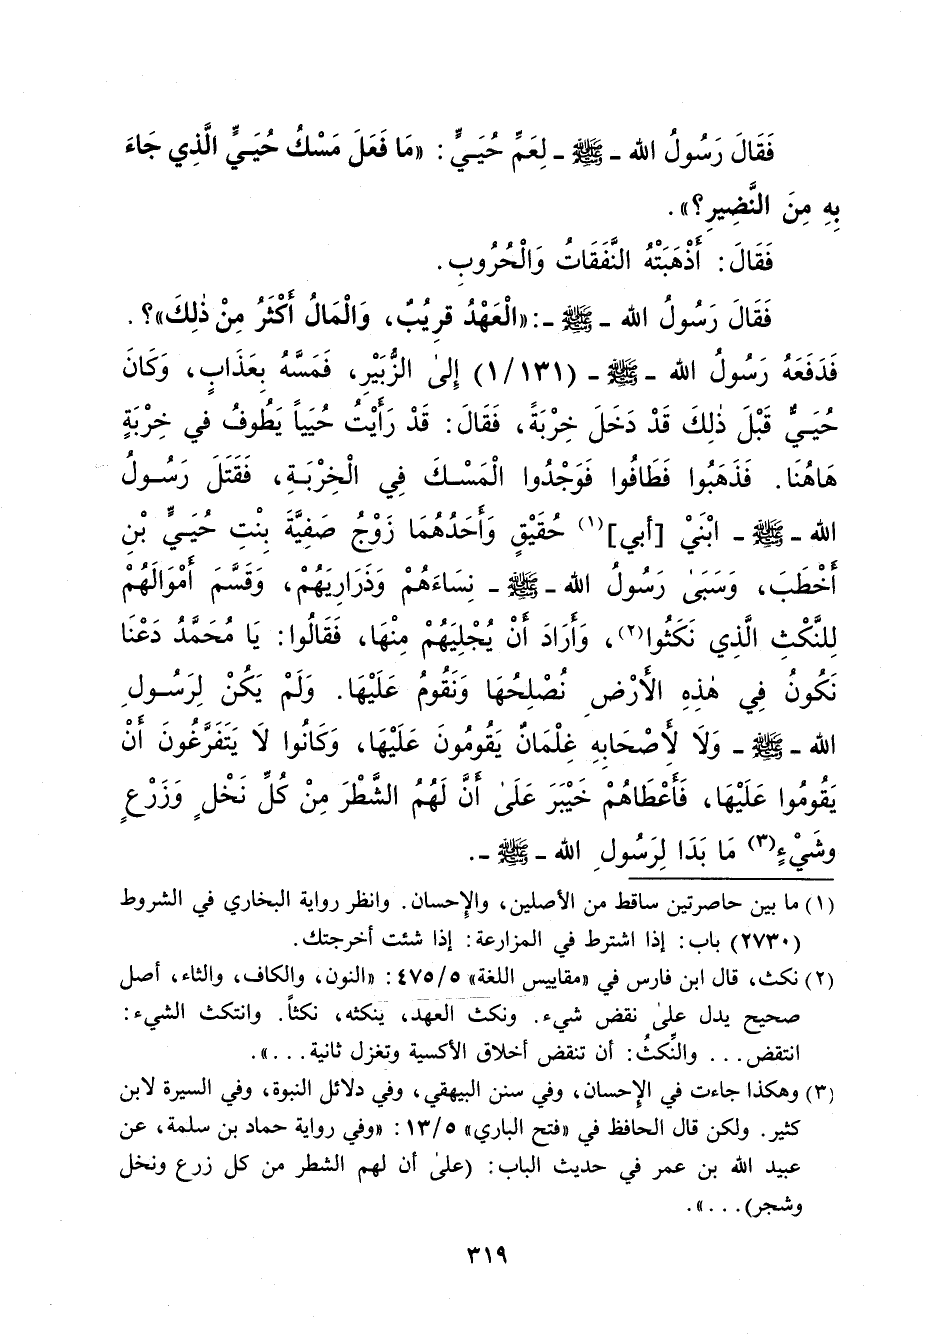 فَقَالَ رَسُولُ الله ـ ﷺ ـ لِعَمِّ حُيَيٍّ: «مَا فَعَلَ مَسْكُ حُيَيٍّ الَّذِي جَاءَ
بِهِ مِنَ النَّضِيرِ؟».
فَقَالَ: أَذْهَبَتْهُ النَّفَقَاتُ وَالْحُرُوبِ.
فَقَالَ رَسُولُ الله ـ ﷺ ـ:«الْعَهْدُ قرِيُبٌ، وَالْمَالُ أَكْثَرُ مِنْ ذٰلِكَ»؟.
فَدَفَعَهُ رَسُولُ الله ـ ﷺ ـ (١/١٣١) إِلىٰ الزُّبَيْرِ، فَمَسَّهُ بِعَذَابٍ، وَكَانَ
حُيَيٌّ قَبْلَ ذٰلِكَ قَدْ دَخَلَ خِرْبَةً، فَقَالَ: قَدْ رَأَيْتُ حُيَياً يَطُوفُ في خِرْبَةٍ
هَاهُنَا. فَذَهَبُوا فَطَافُوا فَوَجْدُوا الْمَسْكَ فِي الْخِرْبَةِ، فَقَتَلَ رَسُولُ
الله ـ ﷺ ـ ابْنَيْ [أبي](١) حُقَيْقٍ وَأَحَدُهُمَا زَوْجُ صَفِيَّةَ بِنْتِ حُيَيٍّ بْنِ
أَخْطَبَ، وَسَبَىٰ رَسُولُ الله ـ ﷺ ـ نِسَاءَهُمْ وَذَرَارِيَهُمْ، وَقَسَّمَ أَمْوَالَهُمْ
لِلنَّكْثِ الَّذِي نَكَثُوا(٢)، وَأَرَادَ أَنْ يُجْلِيَهُمْ مِنْهَا، فَقَالُوا: يَا مُحَمَّدُ دَعْنَا
نَكُونُ فِي هٰذِهِ الأَرْضِ نُصْلِحُهَا وَنَقُومُ عَلَيْهَا. وَلَمْ يَكُنْ لِرَسُولِ
الله ـ ﷺ ـ وَلَا لِأَصْحَابِهِ غِلْمَانٌ يَقُومُونَ عَلَيْهَا، وَكَانُوا لَا يَتَفَرَّغُونَ أَنْ
يَقُومُوا عَلَيْهَا، فَأَعْطَاهُمْ خَيْبَرَ عَلَىٰ أَنَّ لَهُمُ الشَّطْرَ مِنْ كُلِّ نَخْلٍ وَزَرْعٍ
وشَيْءٍ(٣) مَا بَدَا لِرَسُولِ الله ـ ﷺ ـ.
(١) ما بين حاصرتين ساقط من الأصلين، والإحسان. وانظر رواية البخاري في الشروط
(٢٧٣٠) باب: إذا اشترط في المزارعة: إذا شئت أخرجتك.
(٢) نكث، قال ابن فارس في «مقاييس اللغة» ٤٧٥/٥: «النون، والكاف، والثاء، أصل
صحيح يدل علىٰ نقض شيء. ونكث العهد، ينكثه، نكثاً. وانتكث الشيء:
انتقض... والنِّكثُ: أن تنقض أخلاق الأكسية وتغزل ثانية...».
(٣) وهكذا جاءت في الإحسان، وفي سنن البيهقي، وفي دلائل النبوة، وفي السيرة لابن
كثير. ولكن قال الحافظ في «فتح الباري» ١٣/٥: «وفي رواية حماد بن سلمة، عن
عبيد الله بن عمر في حديث الباب: (علىٰ أن لهم الشطر من كل زرع ونخل
وشجر)...».
٣١٩